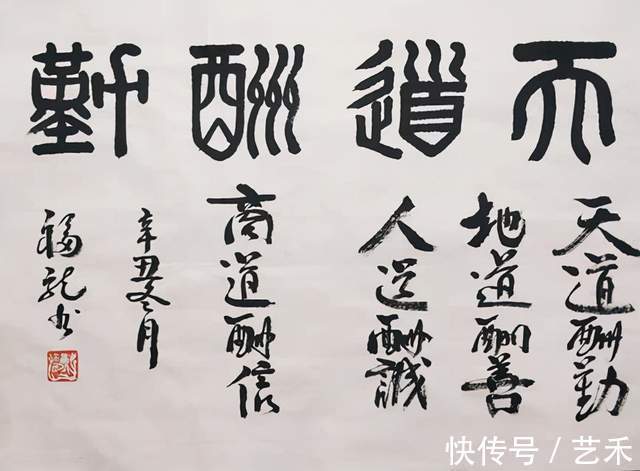 天道酬勤
天道酬勤
地道酬善
人道酬誠
商道酬信
辛丑冬月
福龙书
快传号 / 艺禾